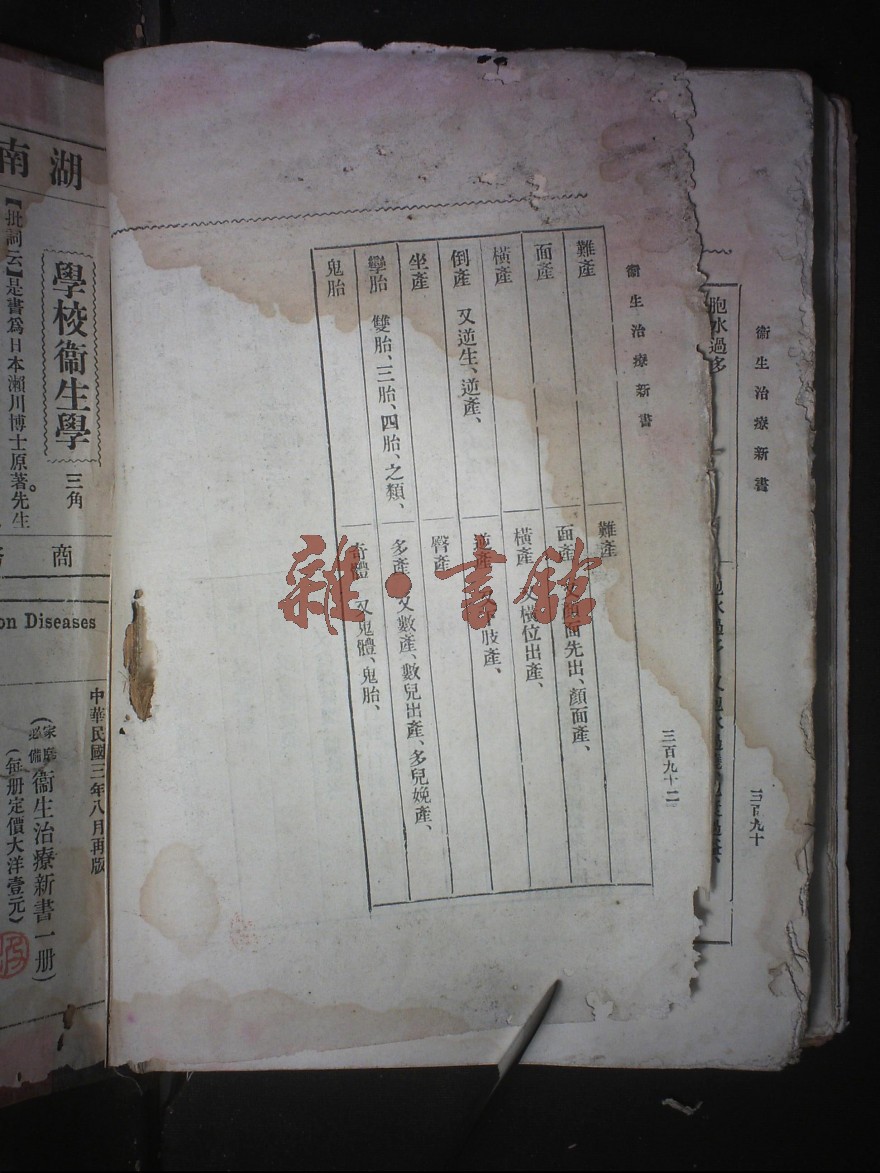 衞生治療新書
三百九十
胞水過多
衞生治療新書
三百九十二
難產
難產
面產
面產
面先出、顏面產、
橫產
橫產 又橫位出產、
倒產 又逆生、逆產、
逆產
肢產、
坐產
臀產
孿胎 雙胎、三胎、四胎、之類、
多產 又數產、數兒出產、多兒娩產、
鬼胎
奇體 又鬼體、鬼胎、
雜·書館
湖南
學校衞生學
三角
【批詞云】是書爲日本瀨川博士原著先生
商
on Diseases
中華民國三年八月再版
(家庭必備)衞生治療新書一册
(每册定價大洋壹元)